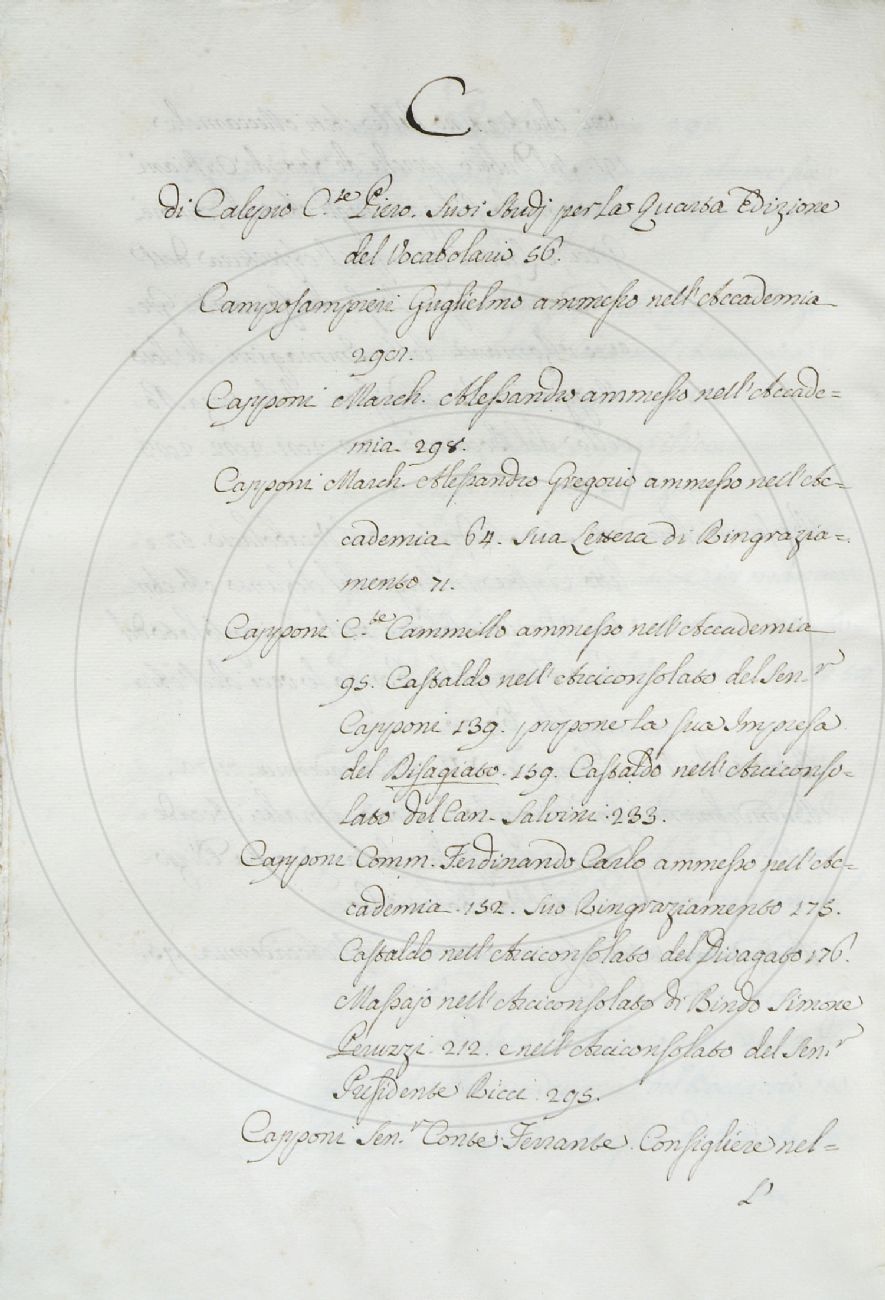 C
di Calepio C.te Piero. Suoi Studj per la Quarta Edizione
del Vocabolario 56.
Camposampieri Guglielmo ammesso nell'Accademia
Capponi March. Alessandro ammesso nell'Accade=
mia 298.
Capponi March. Alessandro Gregorio ammesso nell'Ac=
cademia 64. sua Lettera di Ringrazia=
mento 71.
Capponi C.te Cammillo ammesso nell'Accademia
95. Castaldo nell'Arciconsolato del Sen.r
Capponi 139. propone la sua Impresa
del Disagiato. 159. Castaldo nell'Arciconso=
lato del Can. Salvini. 233.
Capponi Comm. Ferdinando Carlo ammesso nell'Ac=
cademia. 152. suo Ringraziamento 175.
Castaldo nell'Arciconsolato del Divagato 176.
Massajo nell'Arciconsolato di Bindo Simone
Peruzzi. 212. e nell'Arciconsolato del Sen.r
Presidente Ricci. 295.
Capponi Sen.r Conte Ferrante. Consigliere nel=
L'